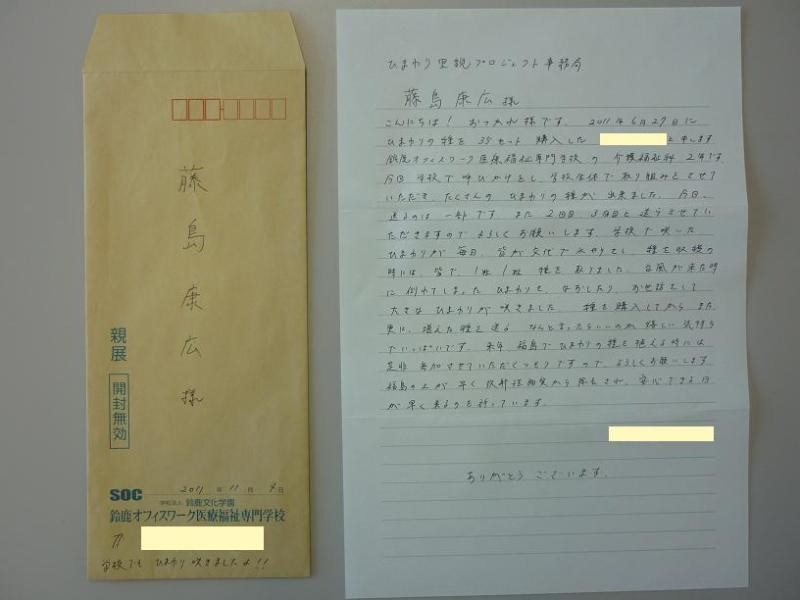 藤島康広様
親展
開封無効
2011年11月4日
SOC 学校法人 鈴鹿文化学園
鈴鹿オフィスワーク医療福祉専門学校
学校でも ひまわり咲きましたよ!!
ひまわり里親プロジェクト事務局
藤島康広様
こんにちは! おつかれ様です。2011年6月29日に
ひまわりの種を35セット購入した と申します
鈴鹿オフィスワーク医療福祉専門学校の介護福祉科2年です。
今回学校で呼びかけをし、学校全体で取り組みをさせて
いただき、たくさんのひまわりの種が出来ました。今回、
送るのは一部です。また2回目、3回目と送らせてい
ただきますのでよろしくお願いします。学校で咲いた
ひまわりが毎日、皆が交代で水やりをし、種を収穫の
時には、皆で、1粒1粒種を取りました。台風が来た時
に倒れてしまったひまわりを、なおしたり、お世話をして
大きなひまわりが咲きました。種を購入してからまた
実に、植えた種を送る なんと言ったらいいのか嬉しい気持ち
でいっぱいです。来年、福島でひまわりの種を植える時には
是非参加させていただくつもりですので、よろしくお願いします。
福島の土が早く放射性物質から除去され、安心できる日
が早く来るのを祈っています。
ありがとうございます。